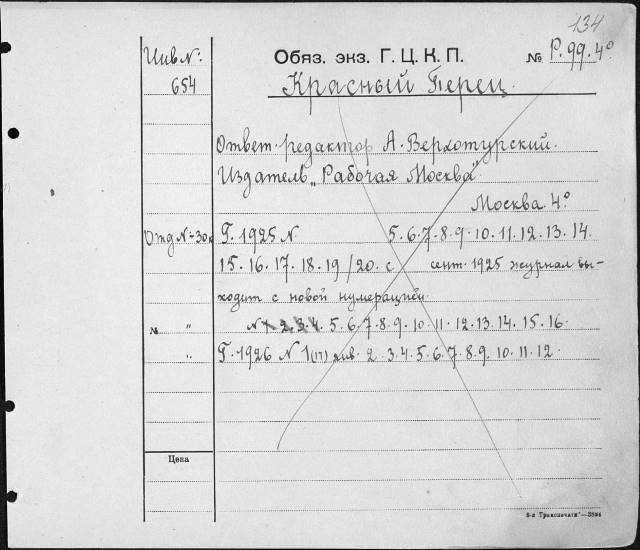 134
Инв №: 654
Обяз. экз. Г. Ц. К. П. № Р. 99. 4°
Красный Перец.
Ответ. редактор А. Верхотурский.
Издатель „Рабочая Москва"
Москва. 4°
Г. 1925 N 5. 6. 7. 8. 9. 10. 11. 12. 13. 14.
15. 16. 17. 18. 19 /20. с сент. 1925 журнал вы-
ходит с новой нумерацией
№ " N 1 2. 3. 4. 5. 6. 7. 8. 9. 10. 11. 12. 13. 14. 15. 16.
" Г. 1926 N 1(17) янв. 2. 3. 4. 5. 6. 7. 8. 9. 10. 11. 12.
Цена